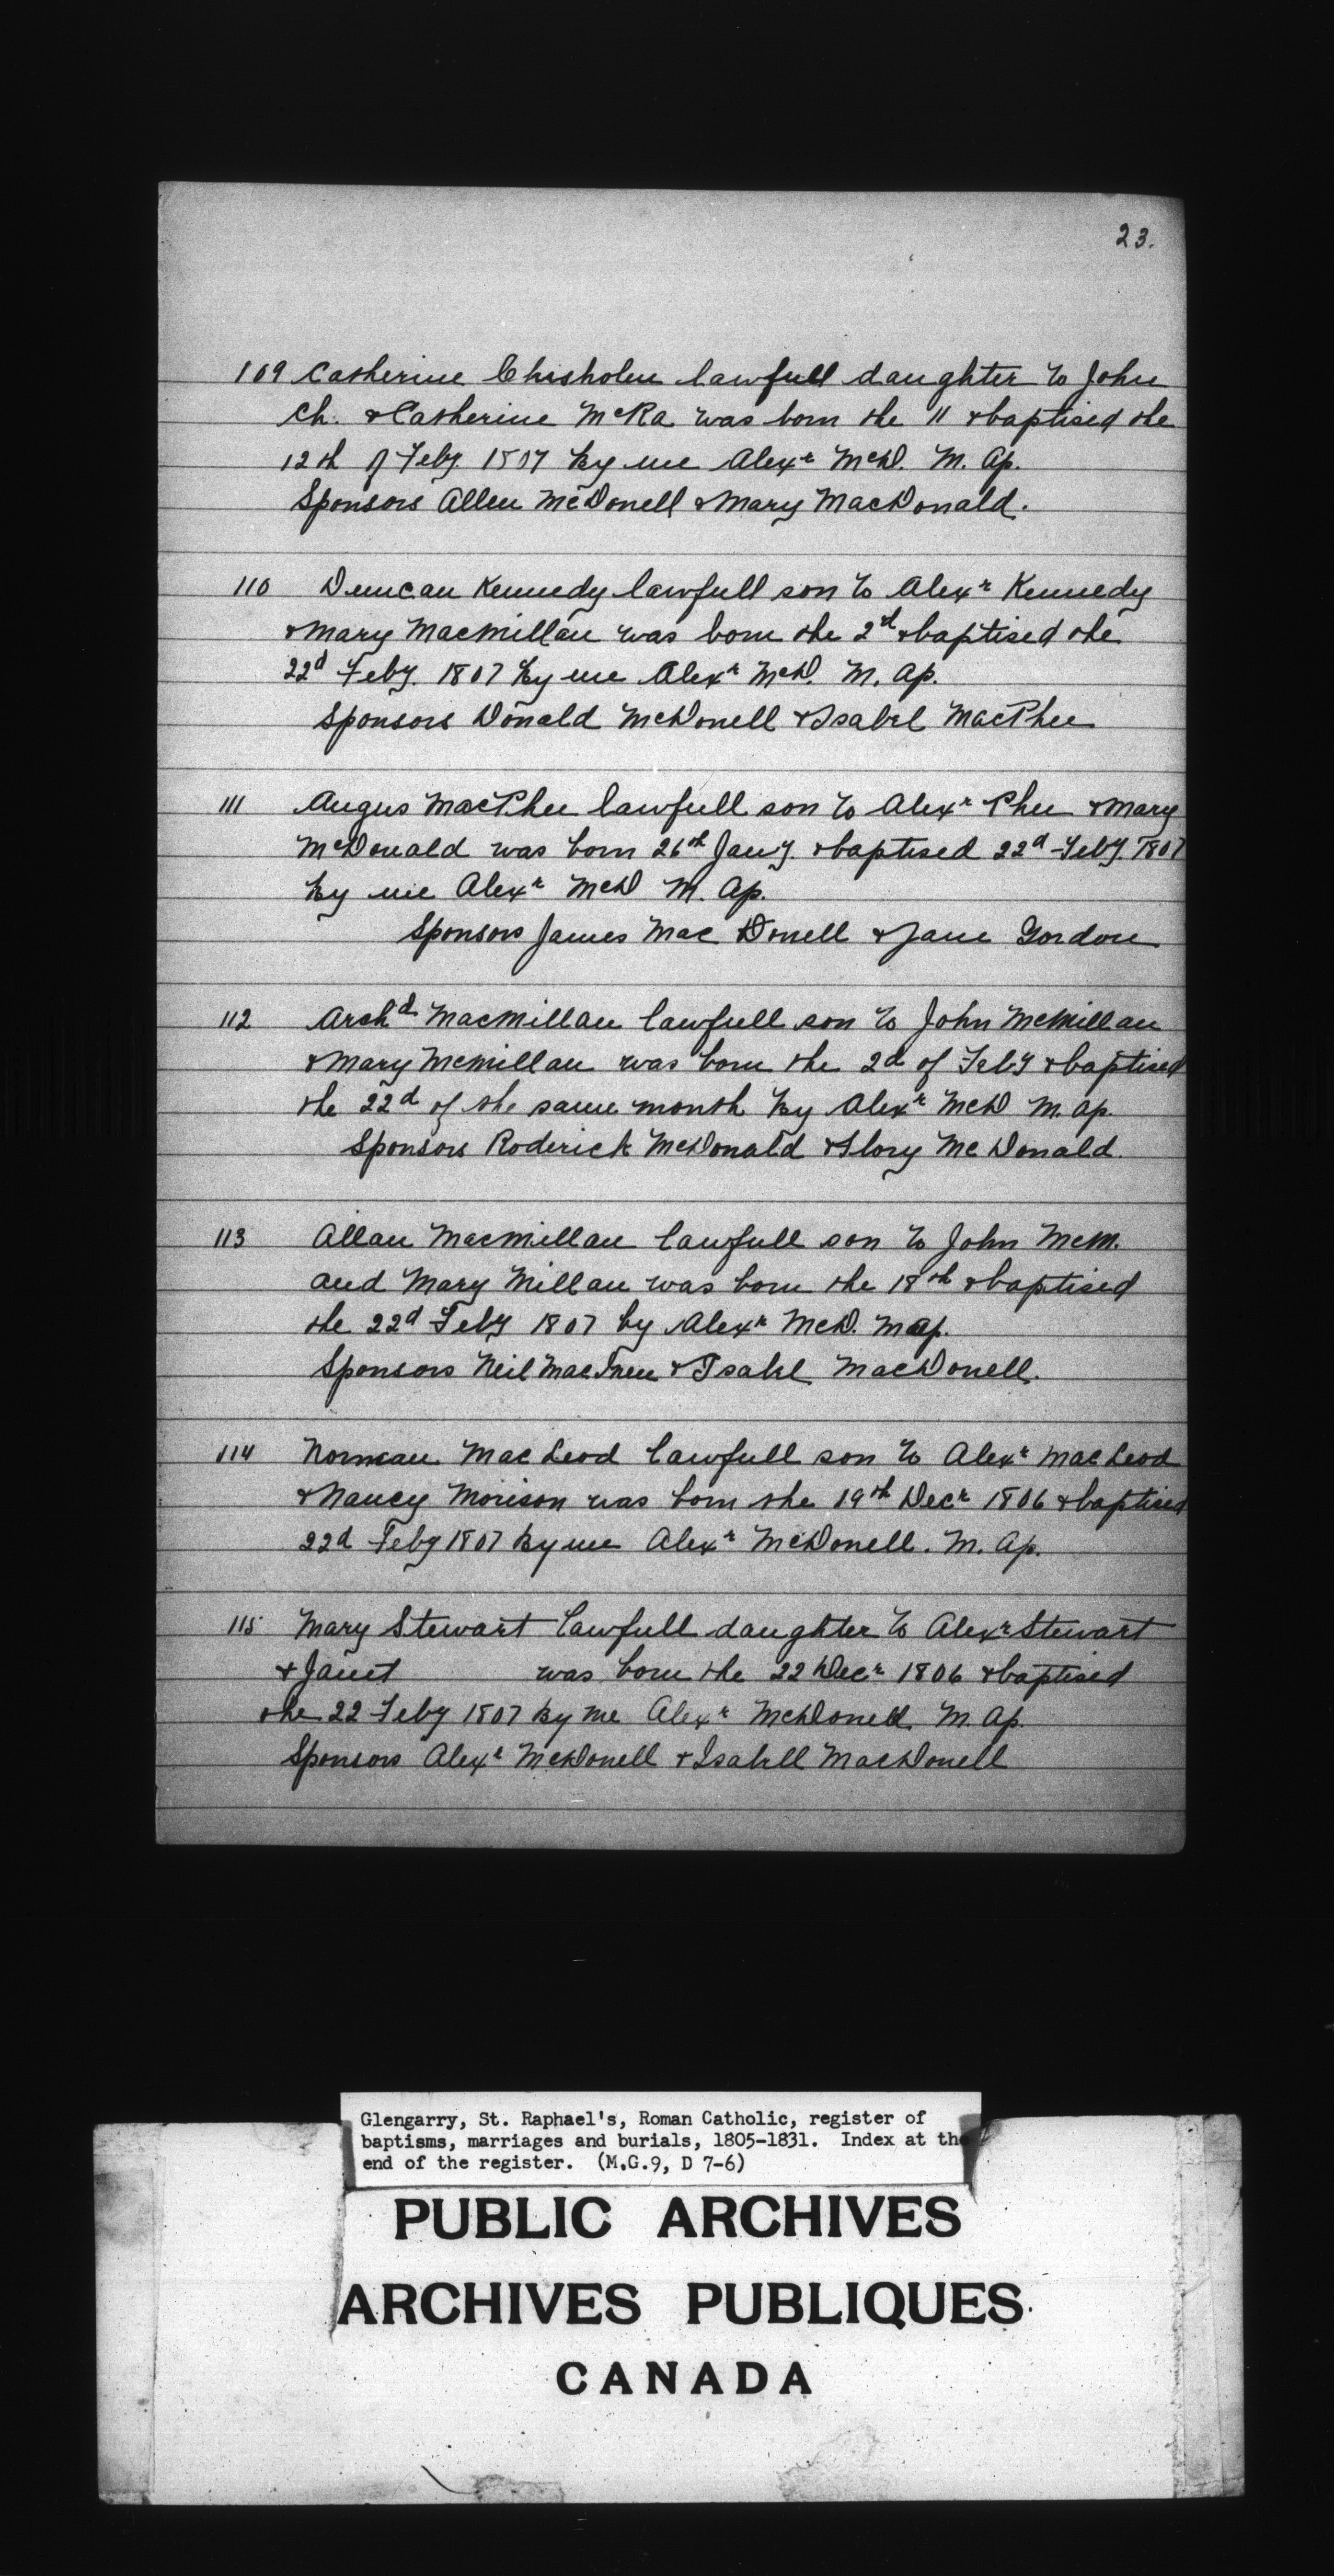 23.
109 Catherine Chisholm lawfull daughter to John
Ch. & Catherine McRa was born the 11 & baptised the
12th of Feby. 1807 by me Alexr McD. M. Ap.
Sponsors Allen McDonell & Mary MacDonald.
110 Duncan Kennedy lawfull son to Alexr Kennedy
& Mary Macmillan was born the 2d & baptised the
22d Feby. 1807 by me Alexr McD. M. Ap.
Sponsors Donald McDonell & Isabel MacPhee
111 Angus MacPhee lawfull son to Alexr Phee & Mary
McDonald was born 26th Jany. & baptised 22d Feby. 1807
by me Alexr McD M. Ap.
Sponsors James Mac Donell & Jane Gordon
112 Archd Macmillan lawfull son to John McMillan
& Mary McMillan was born the 2d of Feby & baptised
the 22d of the same month by Alexr McD M. Ap.
Sponsors Roderick McDonald & Flory McDonald.
113 Allan Macmillan lawfull son to John McM.
and Mary Millan was born the 18th & baptised
the 22d Feby 1807 by Alexr McD. M Ap.
Sponsors Neil & Isabel MacDonell.
114 Norman MacLeod lawfull son to Alexr MacLeod
& Nancy Morison was born the 19th Decr 1806 & baptised
22d Feby 1807 by me Alexr McDonell. M. Ap.
115 Mary Stewart lawfull daughter to Alexr Stewart
& Janet was born the 22 Decr 1806 & baptised
the 22 Feby 1807 by me Alexr McDonell M. Ap.
Sponsors Alexr McDonell & Isabell MacDonell
Glengarry, St. Raphael's, Roman Catholic, register of
baptisms, marriages and burials, 1805-1831. Index at the
end of the register. (M.G.9, D 7-6)
PUBLIC ARCHIVES
ARCHIVES PUBLIQUES
CANADA